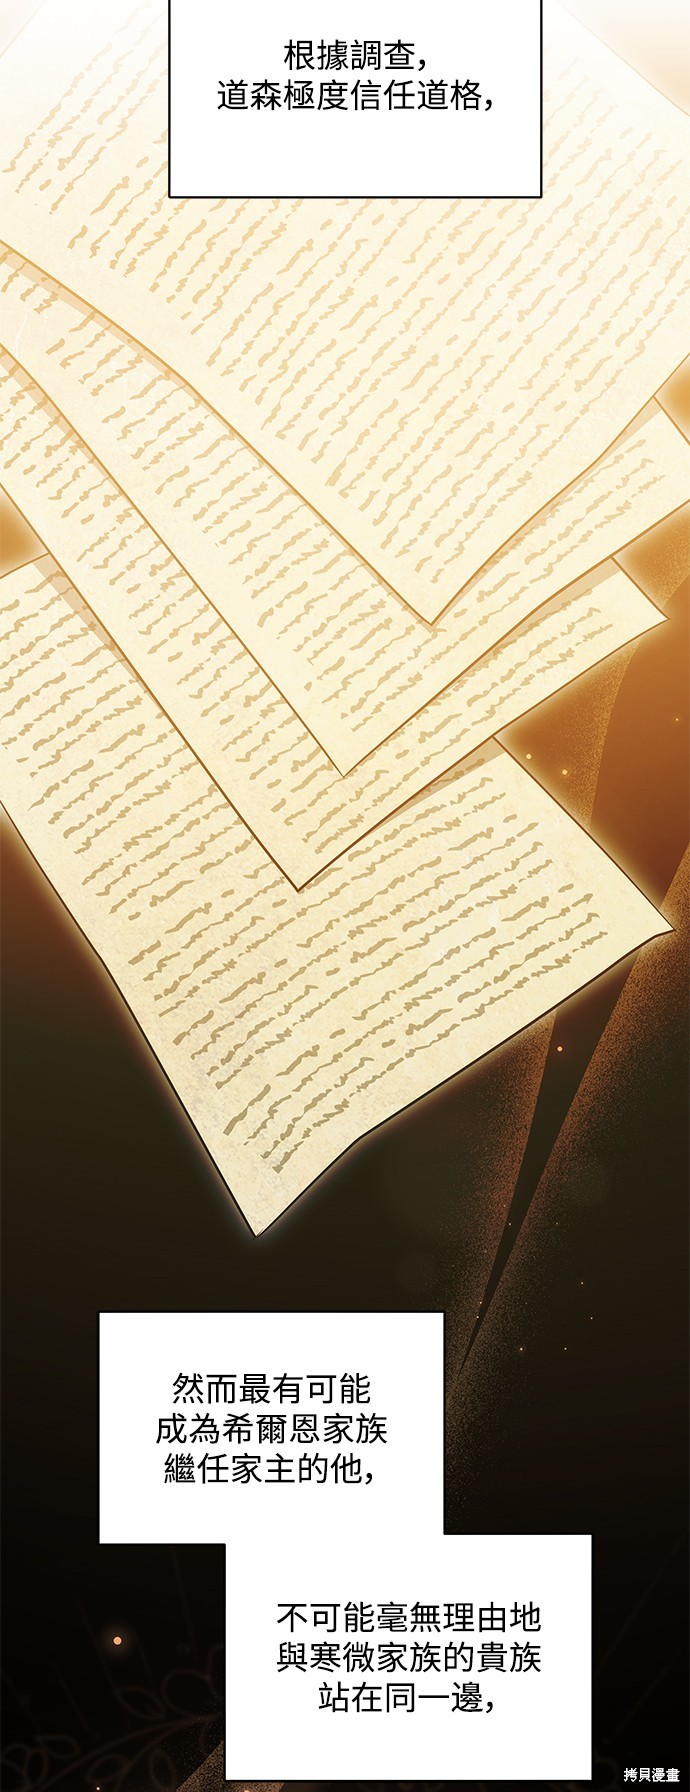 根據調查,
道森極度信任道格,
然而最有可能
成為希爾恩家族
繼任家主的他,
不可能毫無理由地
與寒微家族的貴族
站在同一邊,
拷貝漫畫